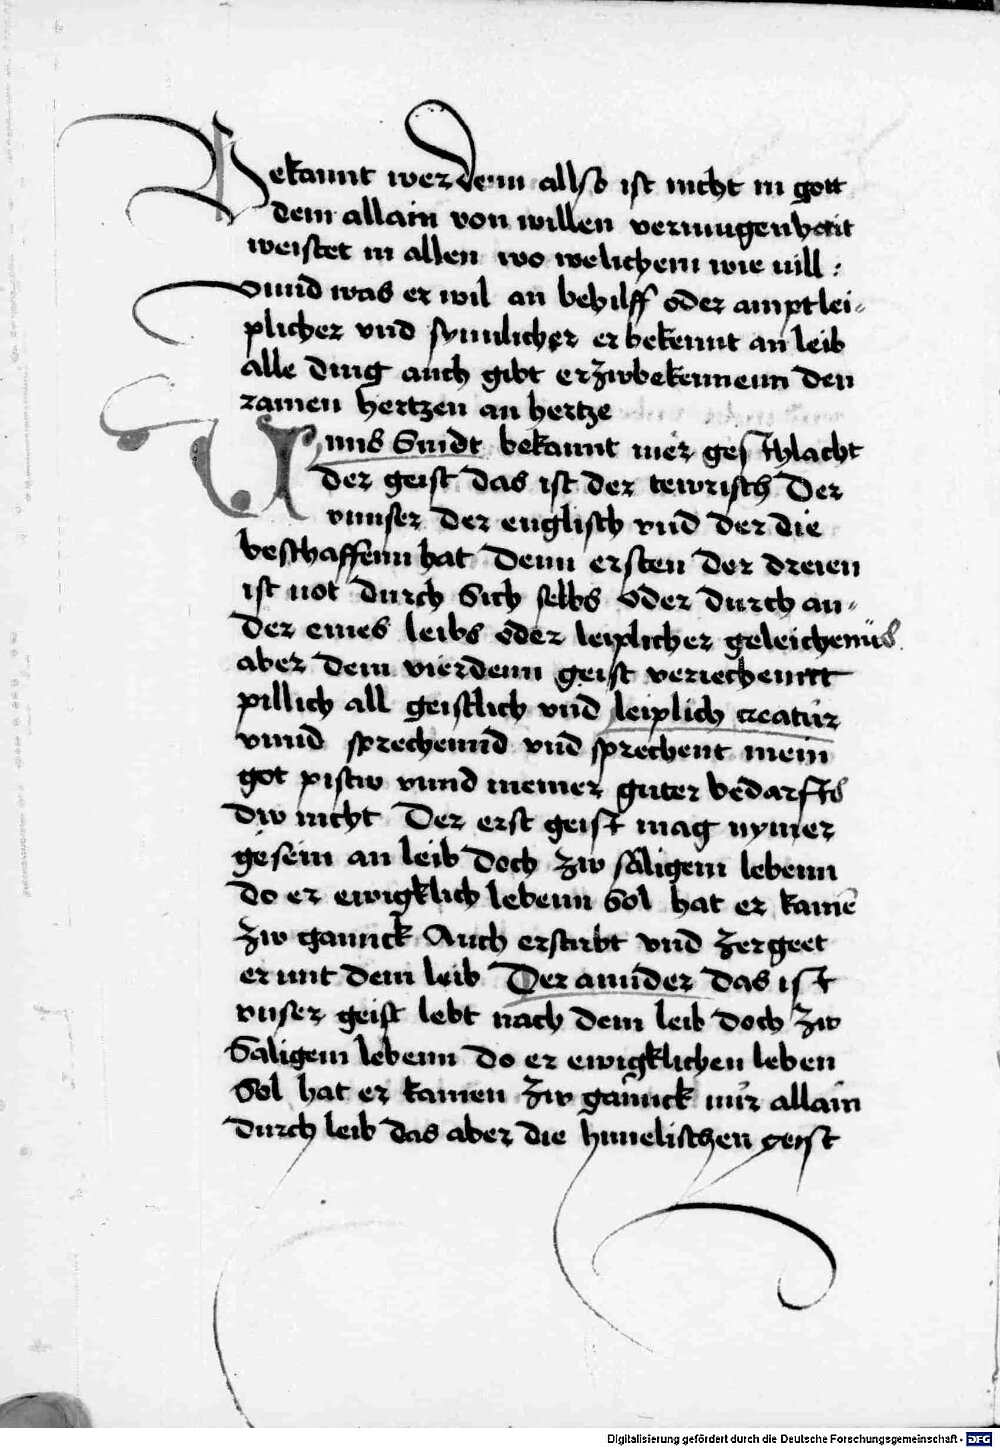 Bekannt werdenn allso ist nicht in gott
dem allain von willen vermugenhait
weistet in allen wo welichem wie uill :
vnnd was er wil an behilff oder amptlei-
plicher vnd synnlicher er bekennt an leib
alle ding auch gibt er zwbekennenn den
ramen hertzen an hertze
Vnns Sindt bekannt uier geschlacht
der geist das ist der tewrisch Der
vnnser der englisch vnd der die
beschaffenn hat Denn ersten der dreien
ist not durch Sich selbs oder durch an-
der eines leibs oder leiplicher geleichenüs
aber dem vierdenn geist veriechenntt
pillich all geistlich vnd leiplich creatür
vnnd sprechennd vnd sprechent mein
got pistw vnnd meiner guter bedarfts
dw nicht Der erst geist mag nymer
gesein an leib doch zw säligem lebenn
do er ewigklich lebenn Sol hat er kainē
zw gannck Auch erstirbt vnd zergeet
er mit dem leib Der annder das ist
vnser geist lebt nach dem leib doch zw
Saligem lebenn do er ewigklichen leben
Sol hat er kainen zw gannck nür allain
durch leib das aber die himelischen geist
Digitalisierung gefördert durch die Deutsche Forschungsgemeinschaft - DFG